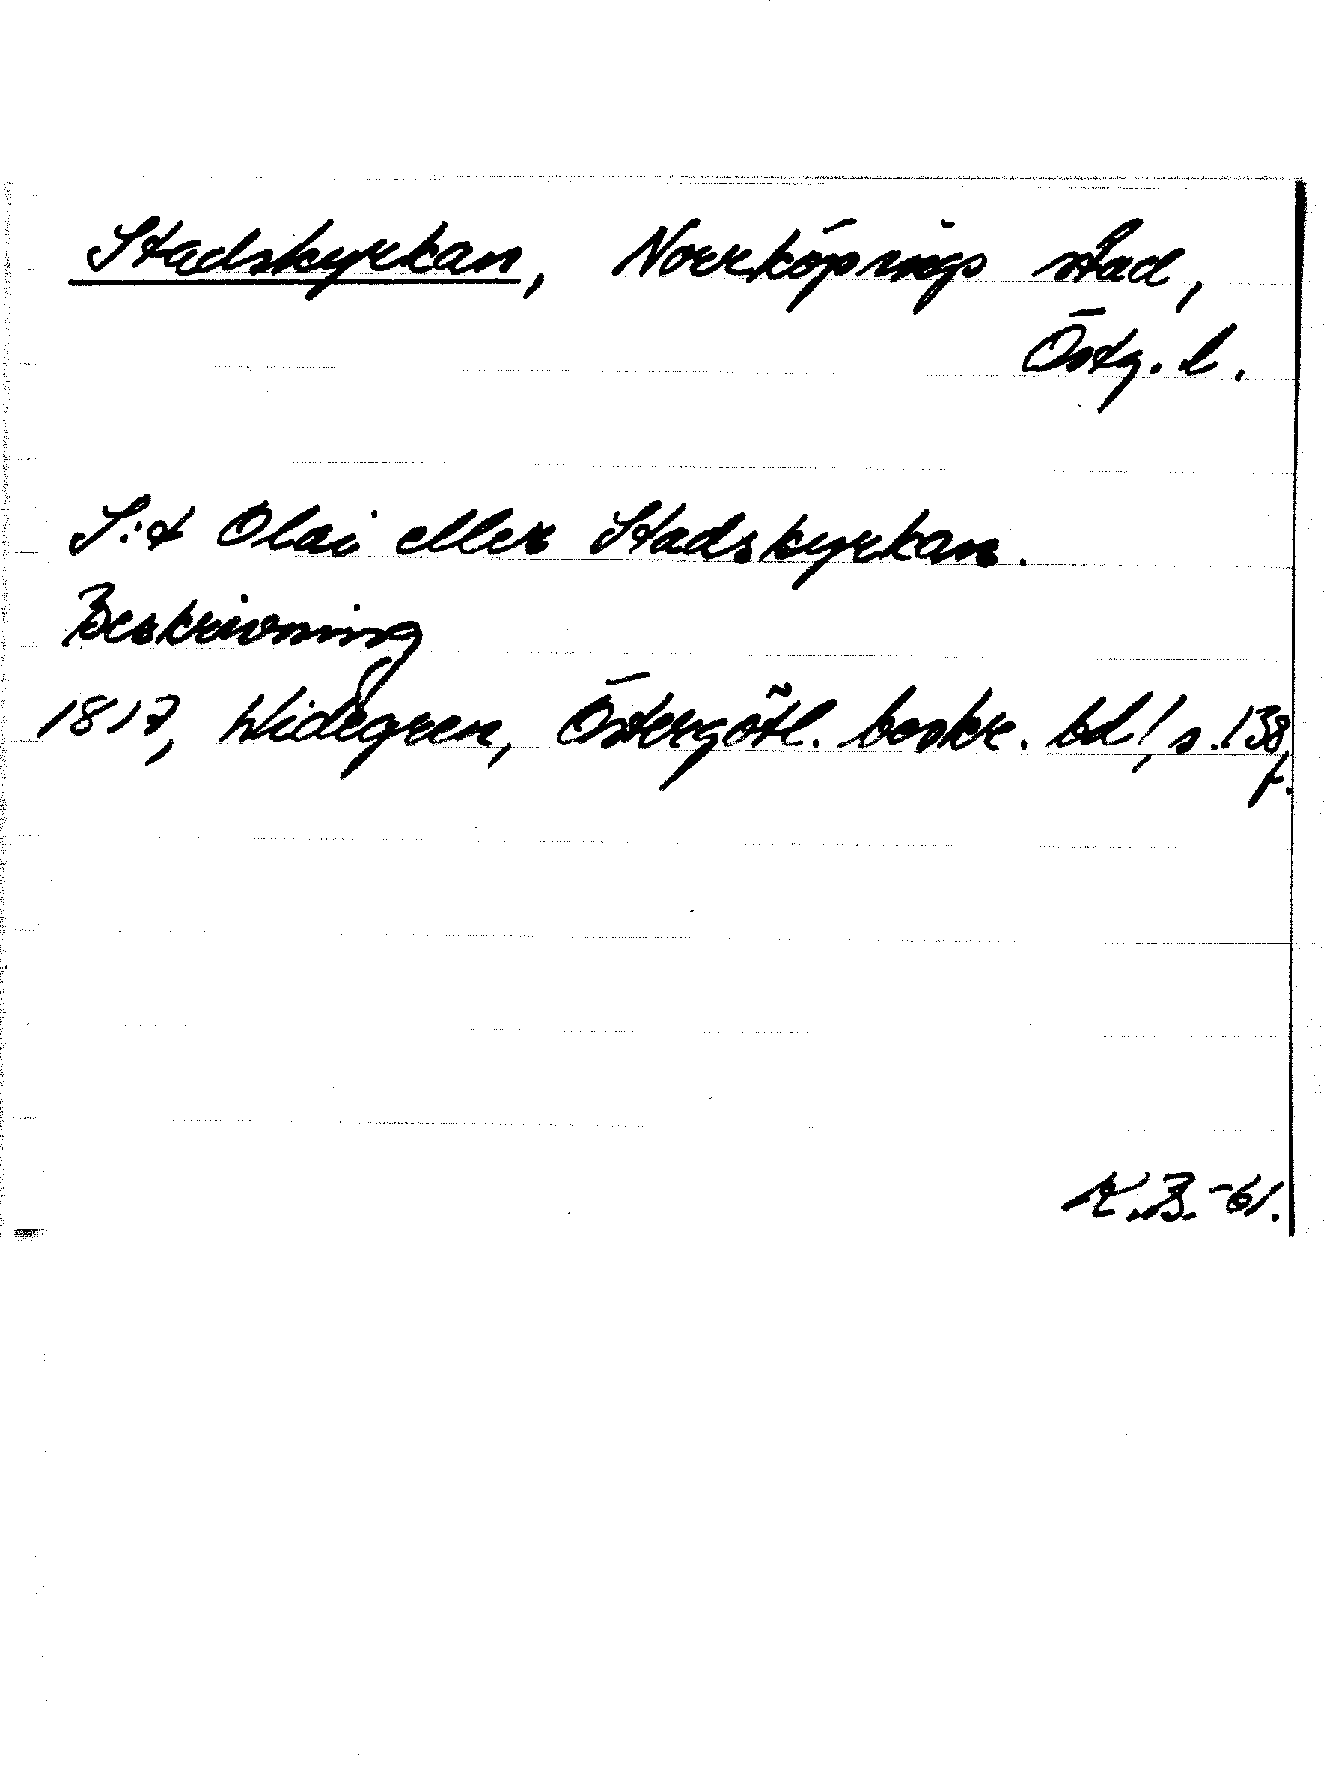 Stadskyrkan, Norrköpings stad,
Östg. l.
S:t Olai eller Stadskyrkan.
Beskrivning
1817, Widegren, Östergötl. beskr. bd 1, s. 138
f.
K.B.-61.